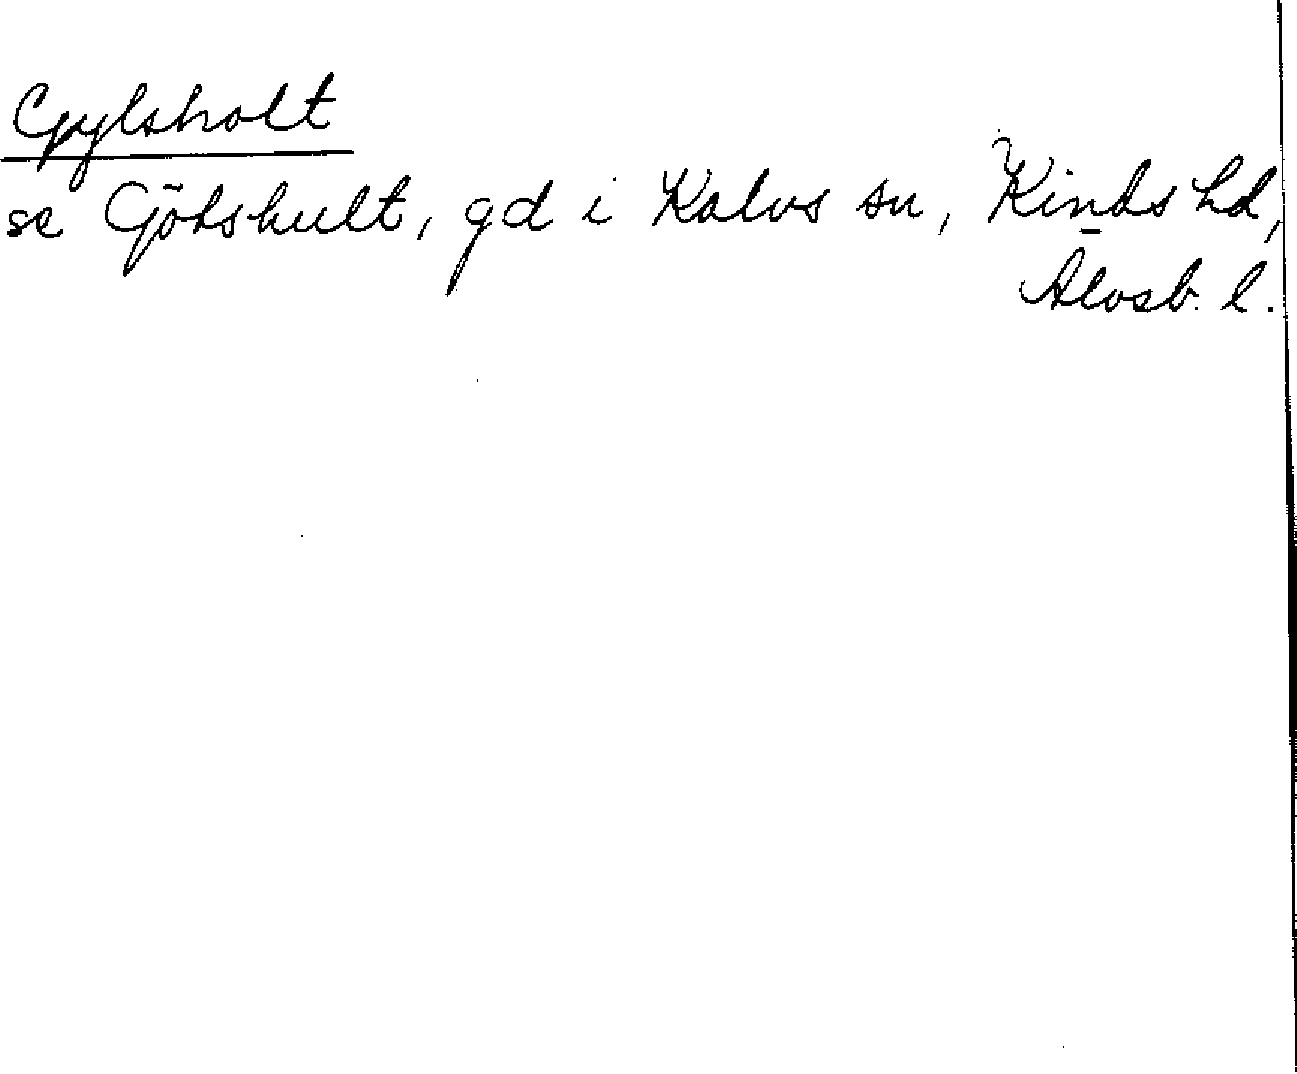 Gylsholt
se Gökshult, gd i Kalvs sn, Kinds hd,
Älvsb. l.